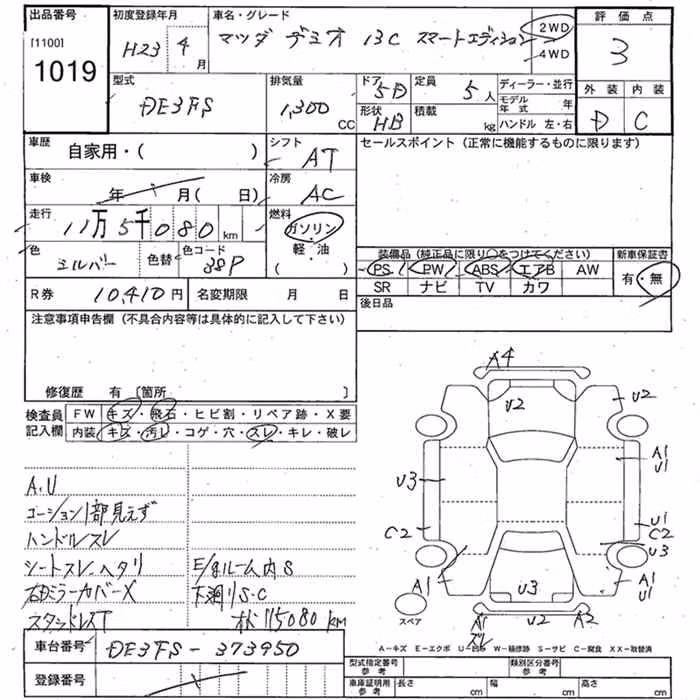 出品番号
[1100]
1019
初度登録年月
H23 4月
車名・グレード
マツダ デミオ 13C スマートエディション
2WD
4WD
評価点
3
型式
DE3FS
排気量
1,300 CC
ドア 5D
形状 HB
定員 5人
積載 kg
ディーラー・並行
モデル年式 年
ハンドル 左・右
外装 内装
D C
車歴
自家用・( )
シフト
AT
セールスポイント (正常に機能するものに限ります)
車検
年 月( 日)
冷房
AC
走行
11万5千080 km
燃料
ガソリン
軽・油
( )
色
シルバー
色替
色コード
38P
装備品 (純正品に限り○をつけてください)
新車保証書
PS PW ABS エアB AW
有・無
SR ナビ TV カワ
R券 10,410円
名変期限 月 日
後日品
注意事項申告欄 (不具合内容等は具体的に記入して下さい)
修復歴 有 〔箇所 〕
検査員記入欄
FW キズ・飛石・ヒビ割・リペア跡・X要
内装 キズ・汚レ・コゲ・穴・スレ・キレ・破レ
A.U
コーション1部見えず
ハンドルスレ
シートスレ、ヘタリ
E/gルーム内S
右ドアミラーカバーX
下廻りS・C
スタッドレスT
115080 km
A4
U2
U2
A1
U1
U3
C2
U1
C2
U3
A1
U3
A1
スペア
A1
スレ
U2
A2
A−キズ E−エクボ U−凹み W−補修跡 S−サビ C−腐食 XX−取替済
車台番号
DE3FS - 373950
登録番号
型式指定番号 参考
類別区分番号 参考
車庫証明用 参考
長さ cm
幅 cm
高さ cm